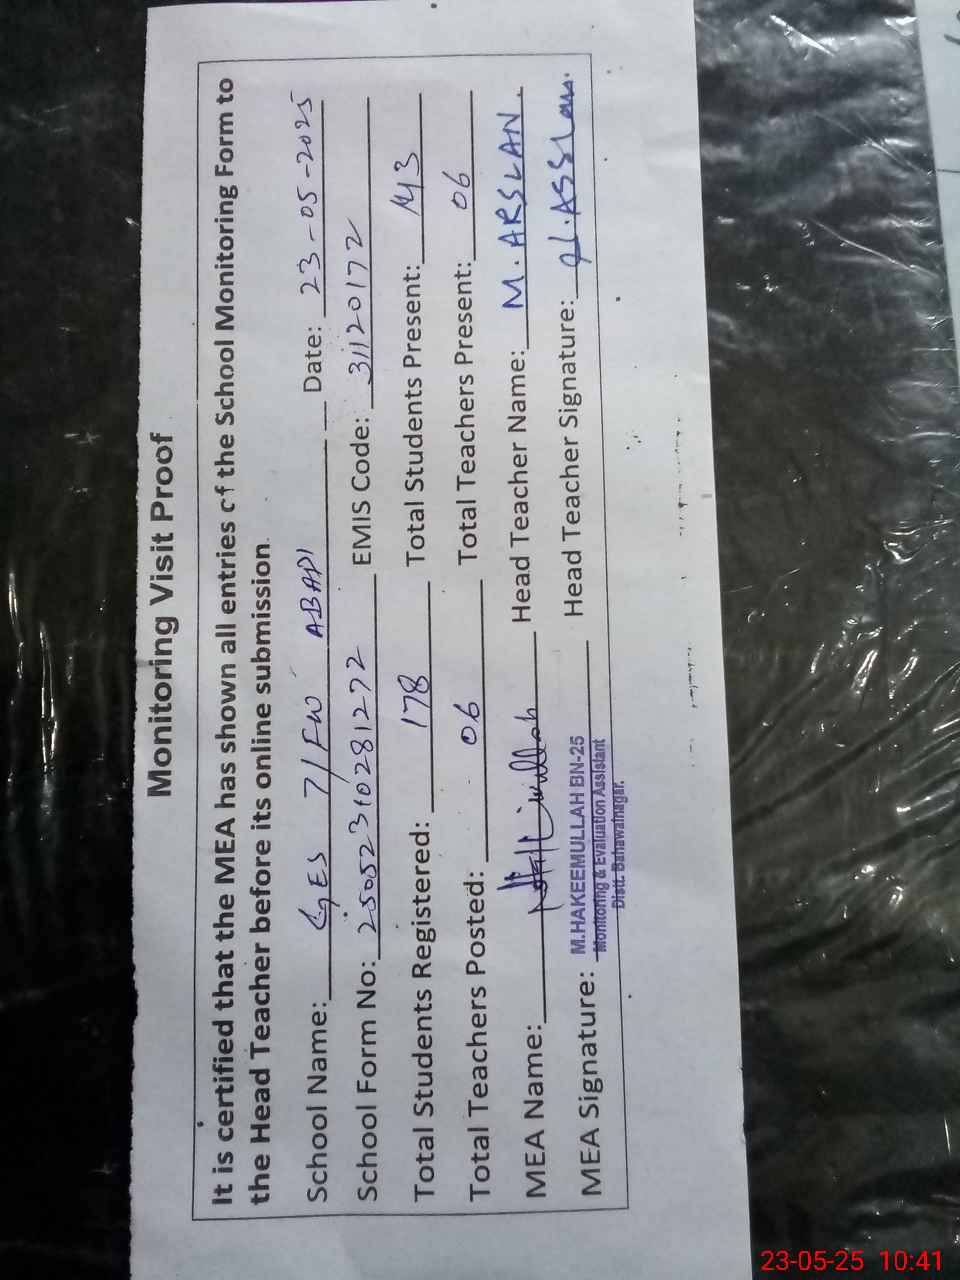 Monitoring Visit Proof
It is certified that the MEA has shown all entries of the School Monitoring Form to
the Head Teacher before its online submission.
School Name: GES 7/FW ABADI Date: 23-05-2025
School Form No: 25052310281272 EMIS Code: 31120172
Total Students Registered: 178 Total Students Present: 143
Total Teachers Posted: 06 Total Teachers Present: 06
MEA Name: Head Teacher Name: M. ARSLAN.
MEA Signature: M.HAKEEMULLAH BN-25 Head Teacher Signature:
Monitoring & Evaluation Assistant
Distt. Bahawalnagar.
23-05-25 10:41